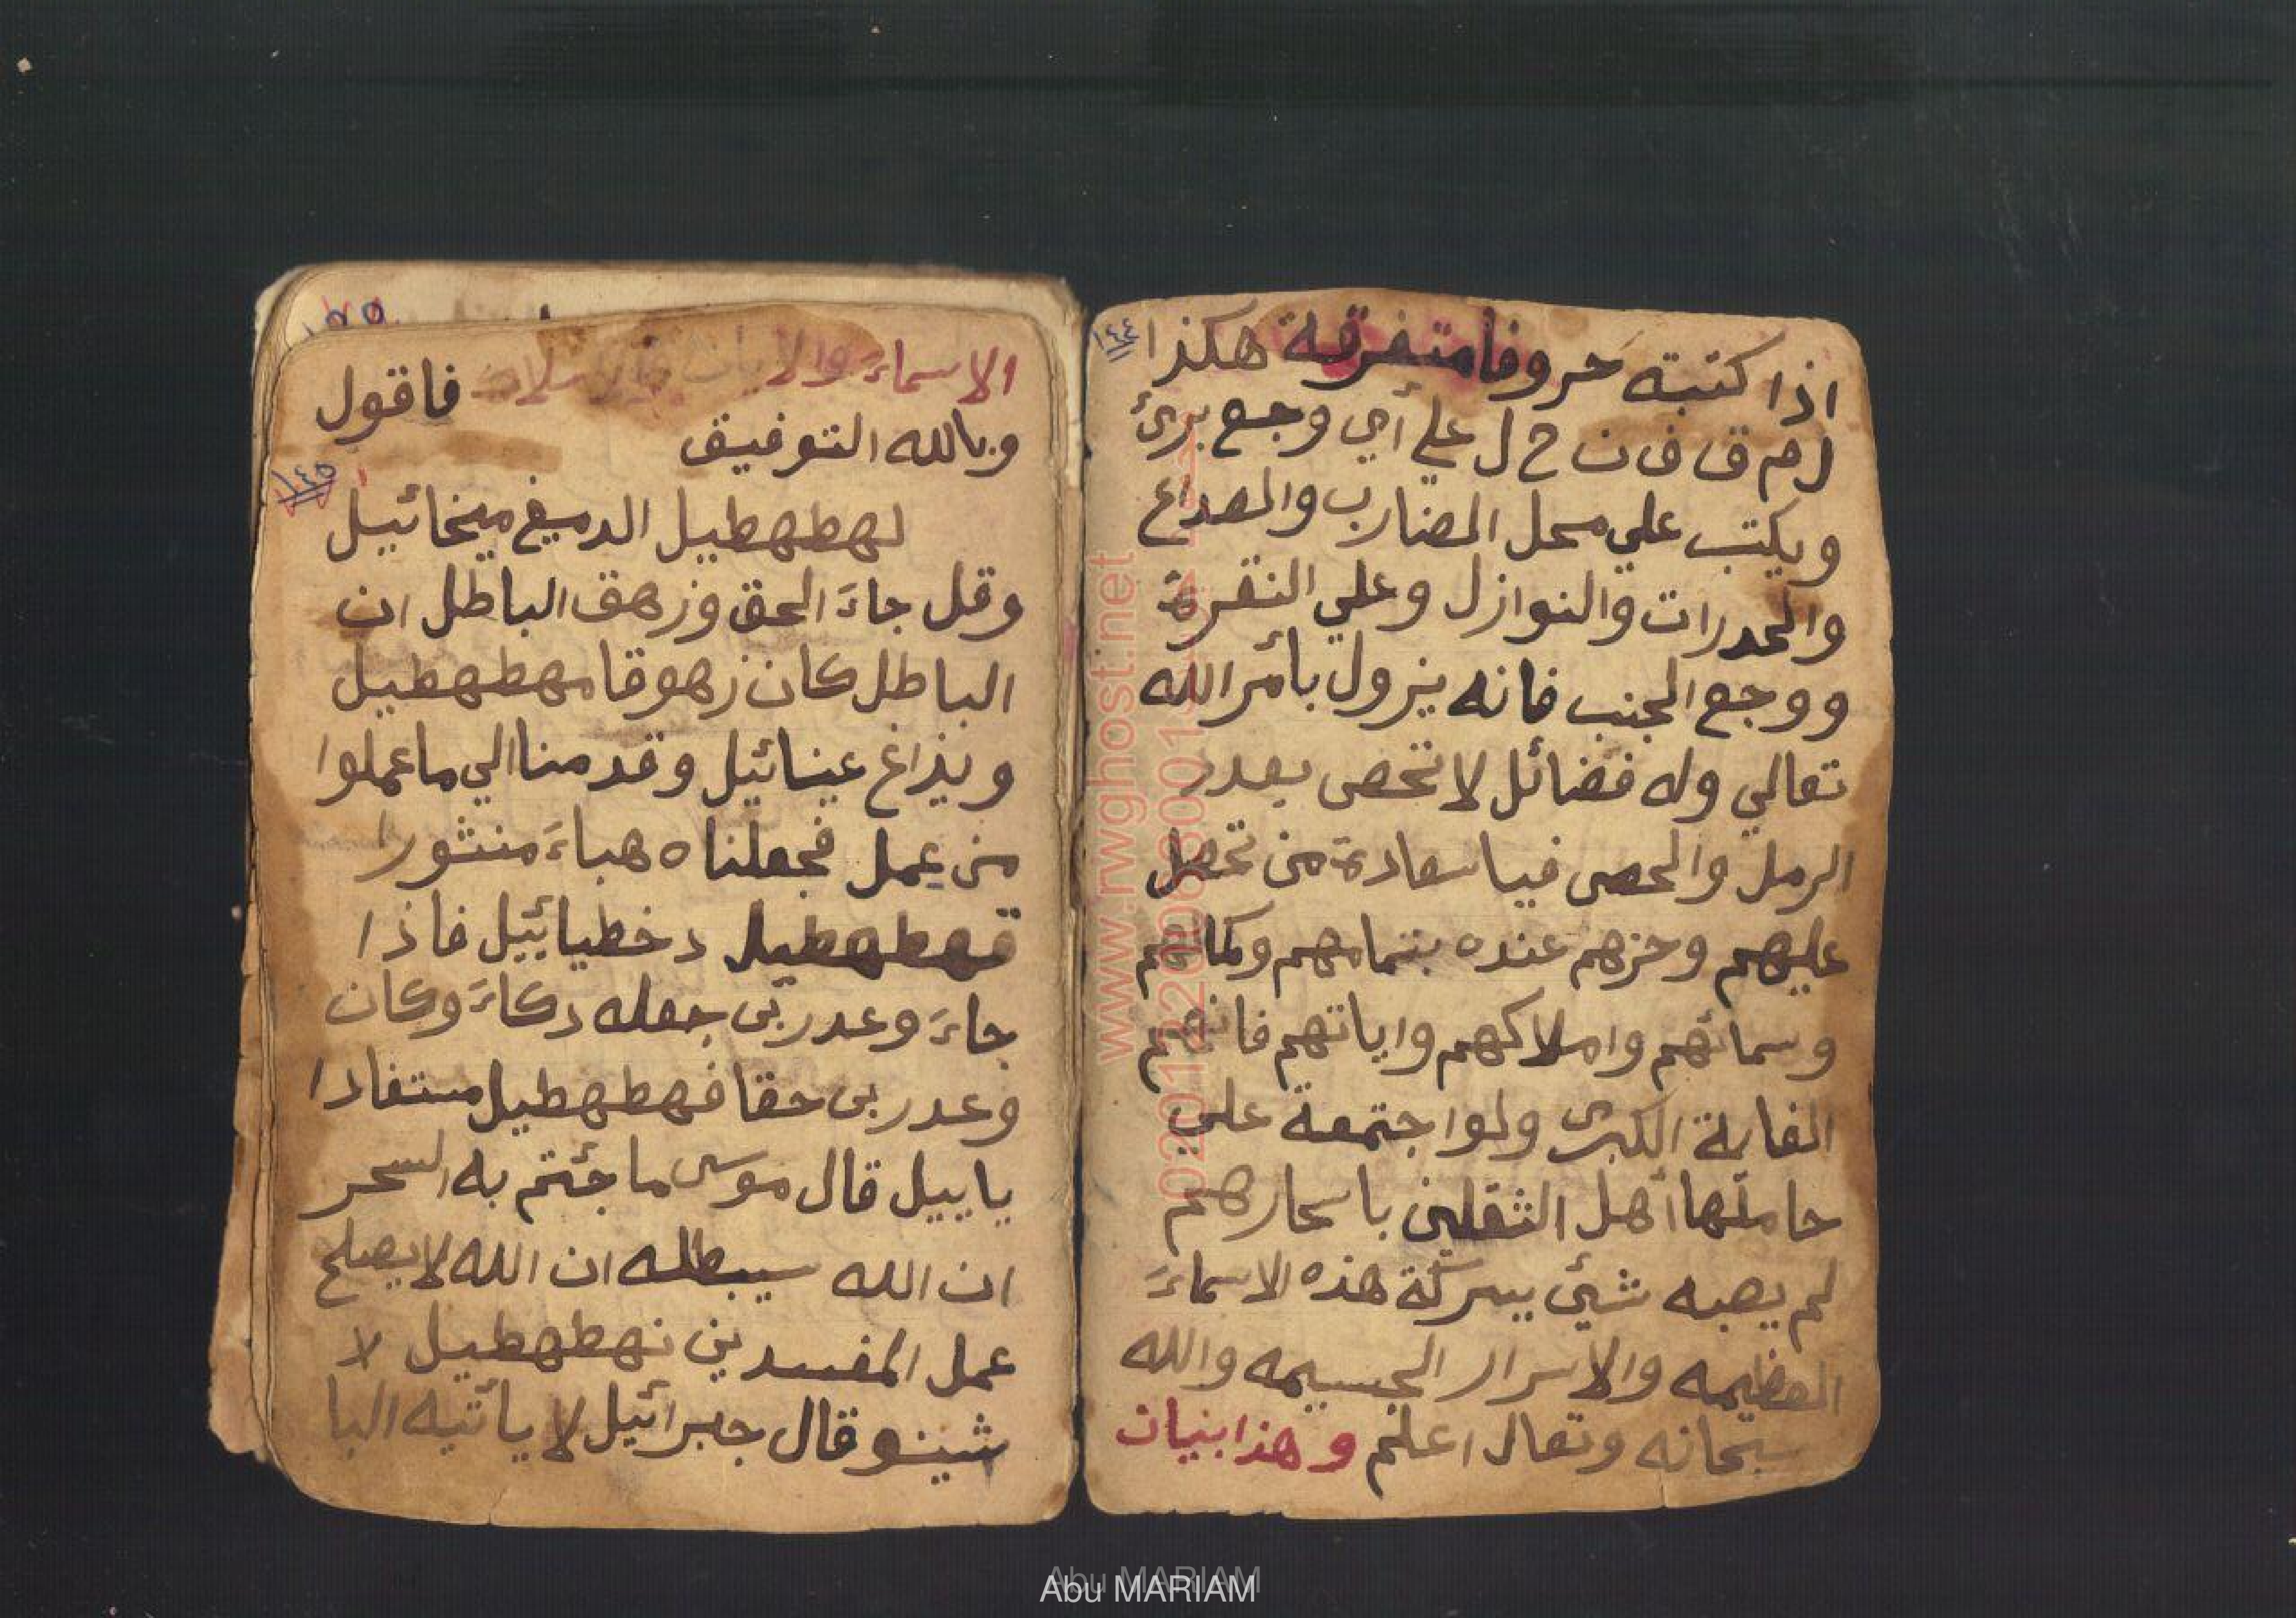 ١٤٤
اذا كتبته حروفا متفرقة هكذا
ل م ق ف ن ج ل علي أي وجع برئ
ويكتب علي محل المضارب والصداع
والحدرات والنوازل وعلي النقرة
ووجع الجنب فانه يزول بأمر الله
تعالي وله فضائل لا تحصى بعدد
الرمل والحصى فيا سعادة من تحصل
عليهم وحزهم عنده بتمامهم وكمالهم
وسمائهم واملاكهم واياتهم فانهم
الغاية الكبرى ولو اجتمعة علي
حاملها أهل الثقلين باسحارهم
لم يصبه شئ ببركة هذه الاسماءَ
العظيمه والاسرار الجسيمه والله
سبحانه وتعال اعلم وهذا بنيان
١٤٥
الاسماءَ والايات فاقول
وبالله التوفيق
لهطهطيل الدميغ ميخائيل
وقل جاءَ الحق وزهق الباطل ان
الباطل كان زهوقا مهطهطيل
ويذاغ عينائيل وقدمنا الي ما عملوا
من عمل فجعلناه هباءَ منثورا
قهطهطيل دخطيائيل فاذا
جاءَ وعد ربى جعله دكاءَ وكان
وعد ربى حقا فهطهطيل ستفادا
ياييل قال موسى ما جئتم به السحر
ان الله سيبطله ان الله لا يصلح
عمل المفسدين نهطهطيل لا
شينو قال جبرائيل لا يأتيه البا
www.rwghost.net
Abu MARIAM